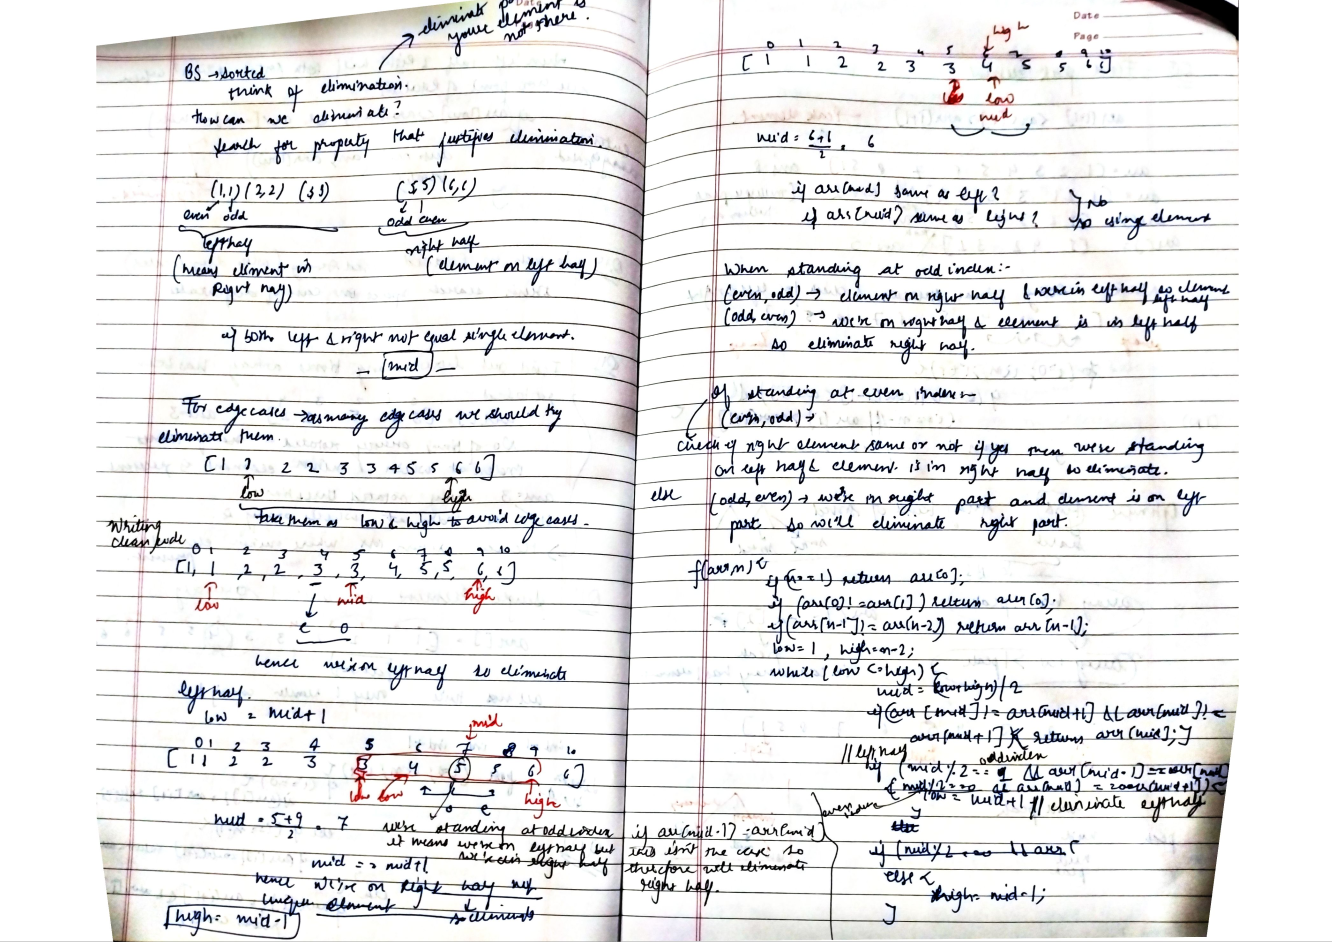 eliminate
your element is
not there.
BS → sorted
think of elimination.
How can we eliminate?
search for property that justifies elimination.
(1,1) (2,2) (3,3) (5,5) (6,6)
even odd odd even
left half right half
(means element in (element on left half)
Right half)
if both left & right not equal single element.
- mid -
For edgecases → as many edge cases we should try
eliminate them.
[1 1 2 2 3 3 4 5 5 6 6]
low high
Take them as low & high to avoid edge cases.
Writing
clean code
0 1 2 3 4 5 6 7 8 9 10
[1, 1, 2, 2, 3, 3, 4, 5, 5, 6, 6]
low mid high
e o
hence we're on left half so eliminate
left half.
low = mid+1
mid
0 1 2 3 4 5 6 7 8 9 10
[ 1 1 2 2 3 3 4 5 5 6 6]
low low high
o e
mid = 5+9/2 = 7
we're standing at odd index
it means we're on left half but
we're in right half
if arr(mid-1) = arr(mid)
this isn't the case so
therefore we'll eliminate
right half.
mid == mid+1
hence we're on Right half not
unique element so eliminate
high = mid-1
Date
Page
high
0 1 2 3 4 5 6 7 8 9 10
[ 1 1 2 2 3 3 4 5 5 6 6]
low
mid
mid = 6+6/2 = 6
if arr[mid] same as left?
if arr[mid] same as right?
} No
so single element
When standing at odd index:-
(even, odd) → element on right half & we're in left half so eliminate
left half
(odd, even) → we're on right half & element is in left half
so eliminate right half.
If standing at even index -
(even, odd) →
Check if right element same or not if yes then we're standing
on left half & element is in right half so eliminate.
else (odd, even) → we're in right part and element is on left
part so we'll eliminate right part.
f(arr, n) {
if (n == 1) return arr[0];
if (arr[0] != arr[1]) return arr[0];
if (arr[n-1] != arr[n-2]) return arr[n-1];
low = 1, high = n-2;
while (low <= high) {
mid = (low+high)/2
if (arr[mid] != arr[mid+1] && arr[mid] !=
arr[mid+1]) { return arr[mid]; }
// left half
odd index
if (mid % 2 == 1 && arr[mid-1] == arr[mid]
(mid % 2 == 0 && arr[mid] == arr[mid+1]) {
low = mid+1 // eliminate left half
}
if (mid % 2 == 0 && arr[
else {
high = mid-1;
}